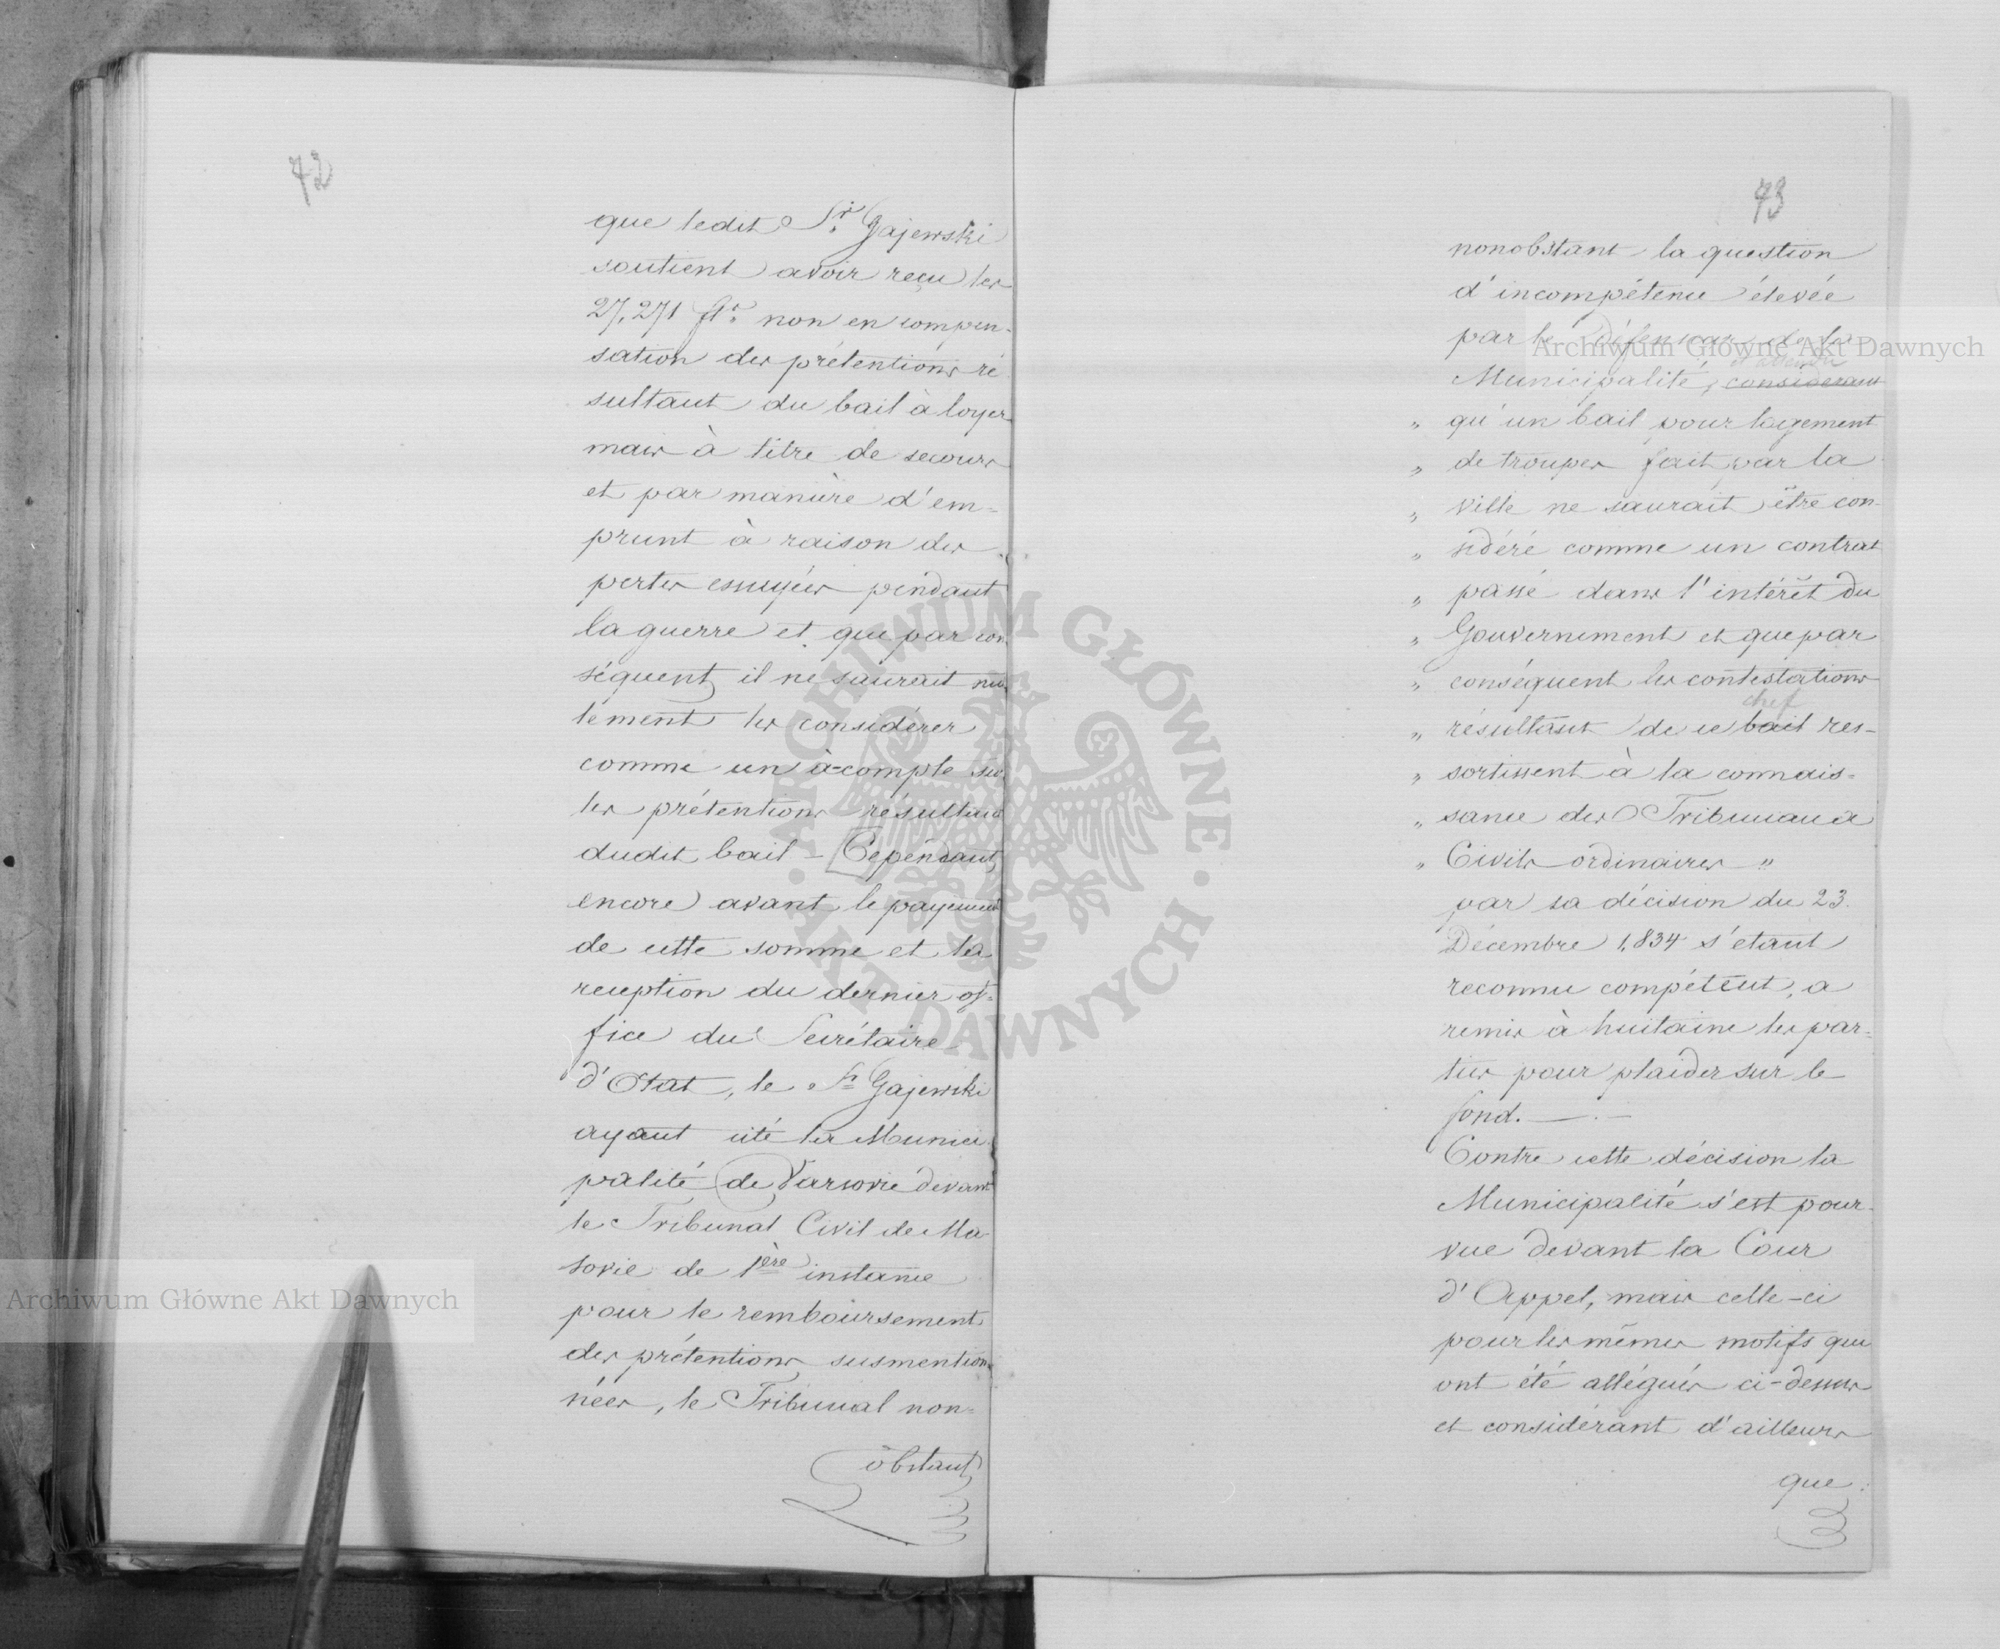 72
que ledit Sr. Gajewski
soutient avoir reçu les
27,271 flr. non en compen-
sation des prétentions ré
sultant du bail à loyer
mais à titre de secours
et par manière d'em=
prunt à raison des
pertes essuyées pendant
la guerre et que par con
séquent, il ne saurait nul
lement les considérer
comme un à-compte sur
les prétentions résultant
dudit bail – Cependant
encore avant le payement
de cette somme et la
reception du dernier of-
fice du Secrétaire
d'Etat, le Sr Gajewski
ayant cité la Munici
palité de Varsovie devant
le Tribunal Civil de Ma
sovie de 1ère instance
pour le remboursement
des prétentions susmention
nées, le Tribunal non=
obstant
73
nonobstant la question
d'incompétence élevée
par le défenseur de la
Municipalité, considérant
et attendu
" qu'un bail pour logement
" de troupes fait par la
" ville ne saurait être con-
" sidéré comme un contrat
" passé dans l'intérêt du
" Gouvernement et que par
" conséquent les contestations
chef
" résultant de ce bail res-
" sortissent à la connais=
" sance des Tribunaux
" Civils ordinaires "
par sa décision du 23.
Décembre 1,834 s'etant
reconnu compétent, a
remis à huitaine les par=
ties pour plaider sur le
fond. — . —
Contre cette décision la
Municipalité s'est pour-
vue devant la Cour
d'Appel, mais celle-ci
pour les mêmes motifs qui
ont été allégués ci-dessus
et considérant d'ailleurs
que
Archiwum Główne Akt Dawnych
Archiwum Główne Akt Dawnych
ARCHIWUM GŁÓWNE · AKT DAWNYCH ·